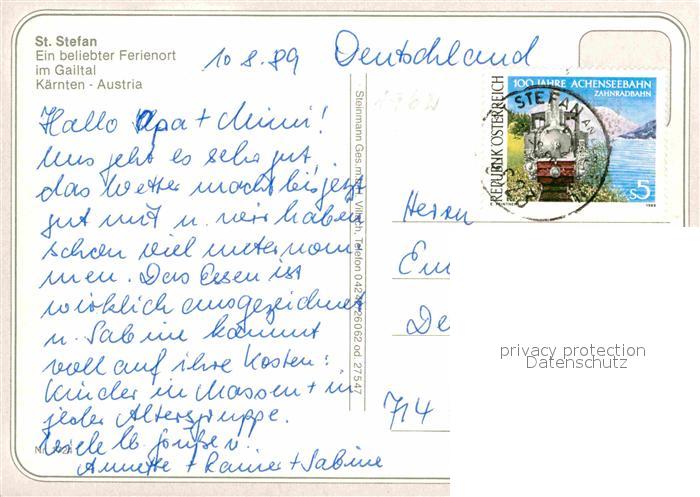 St. Stefan
Ein beliebter Ferienort
im Gailtal
Kärnten - Austria
10.8.89 Deutschland
Hallo Opa + Mimi!
Uns geht es sehr gut,
das Wetter macht bis jetzt
gut mit u. wir haben
schon viel unternom
men. Das Essen ist
wirklich ausgezeichnet
u. Sabine kommt
voll auf ihre Kosten:
Kinder in Massen + in
jeder Altersgruppe.
Viele lb. Grüße v.
Annette + Rainer + Sabine
Steinmann Ges.m.b.H., Villach, Telefon 04242/26062 od. 27547
100 JAHRE ACHENSEEBAHN
ZAHNRADBAHN
REPUBLIK ÖSTERREICH
S5
1989
STEFAN AN
Herrn
Em
De
714
privacy protection
Datenschutz